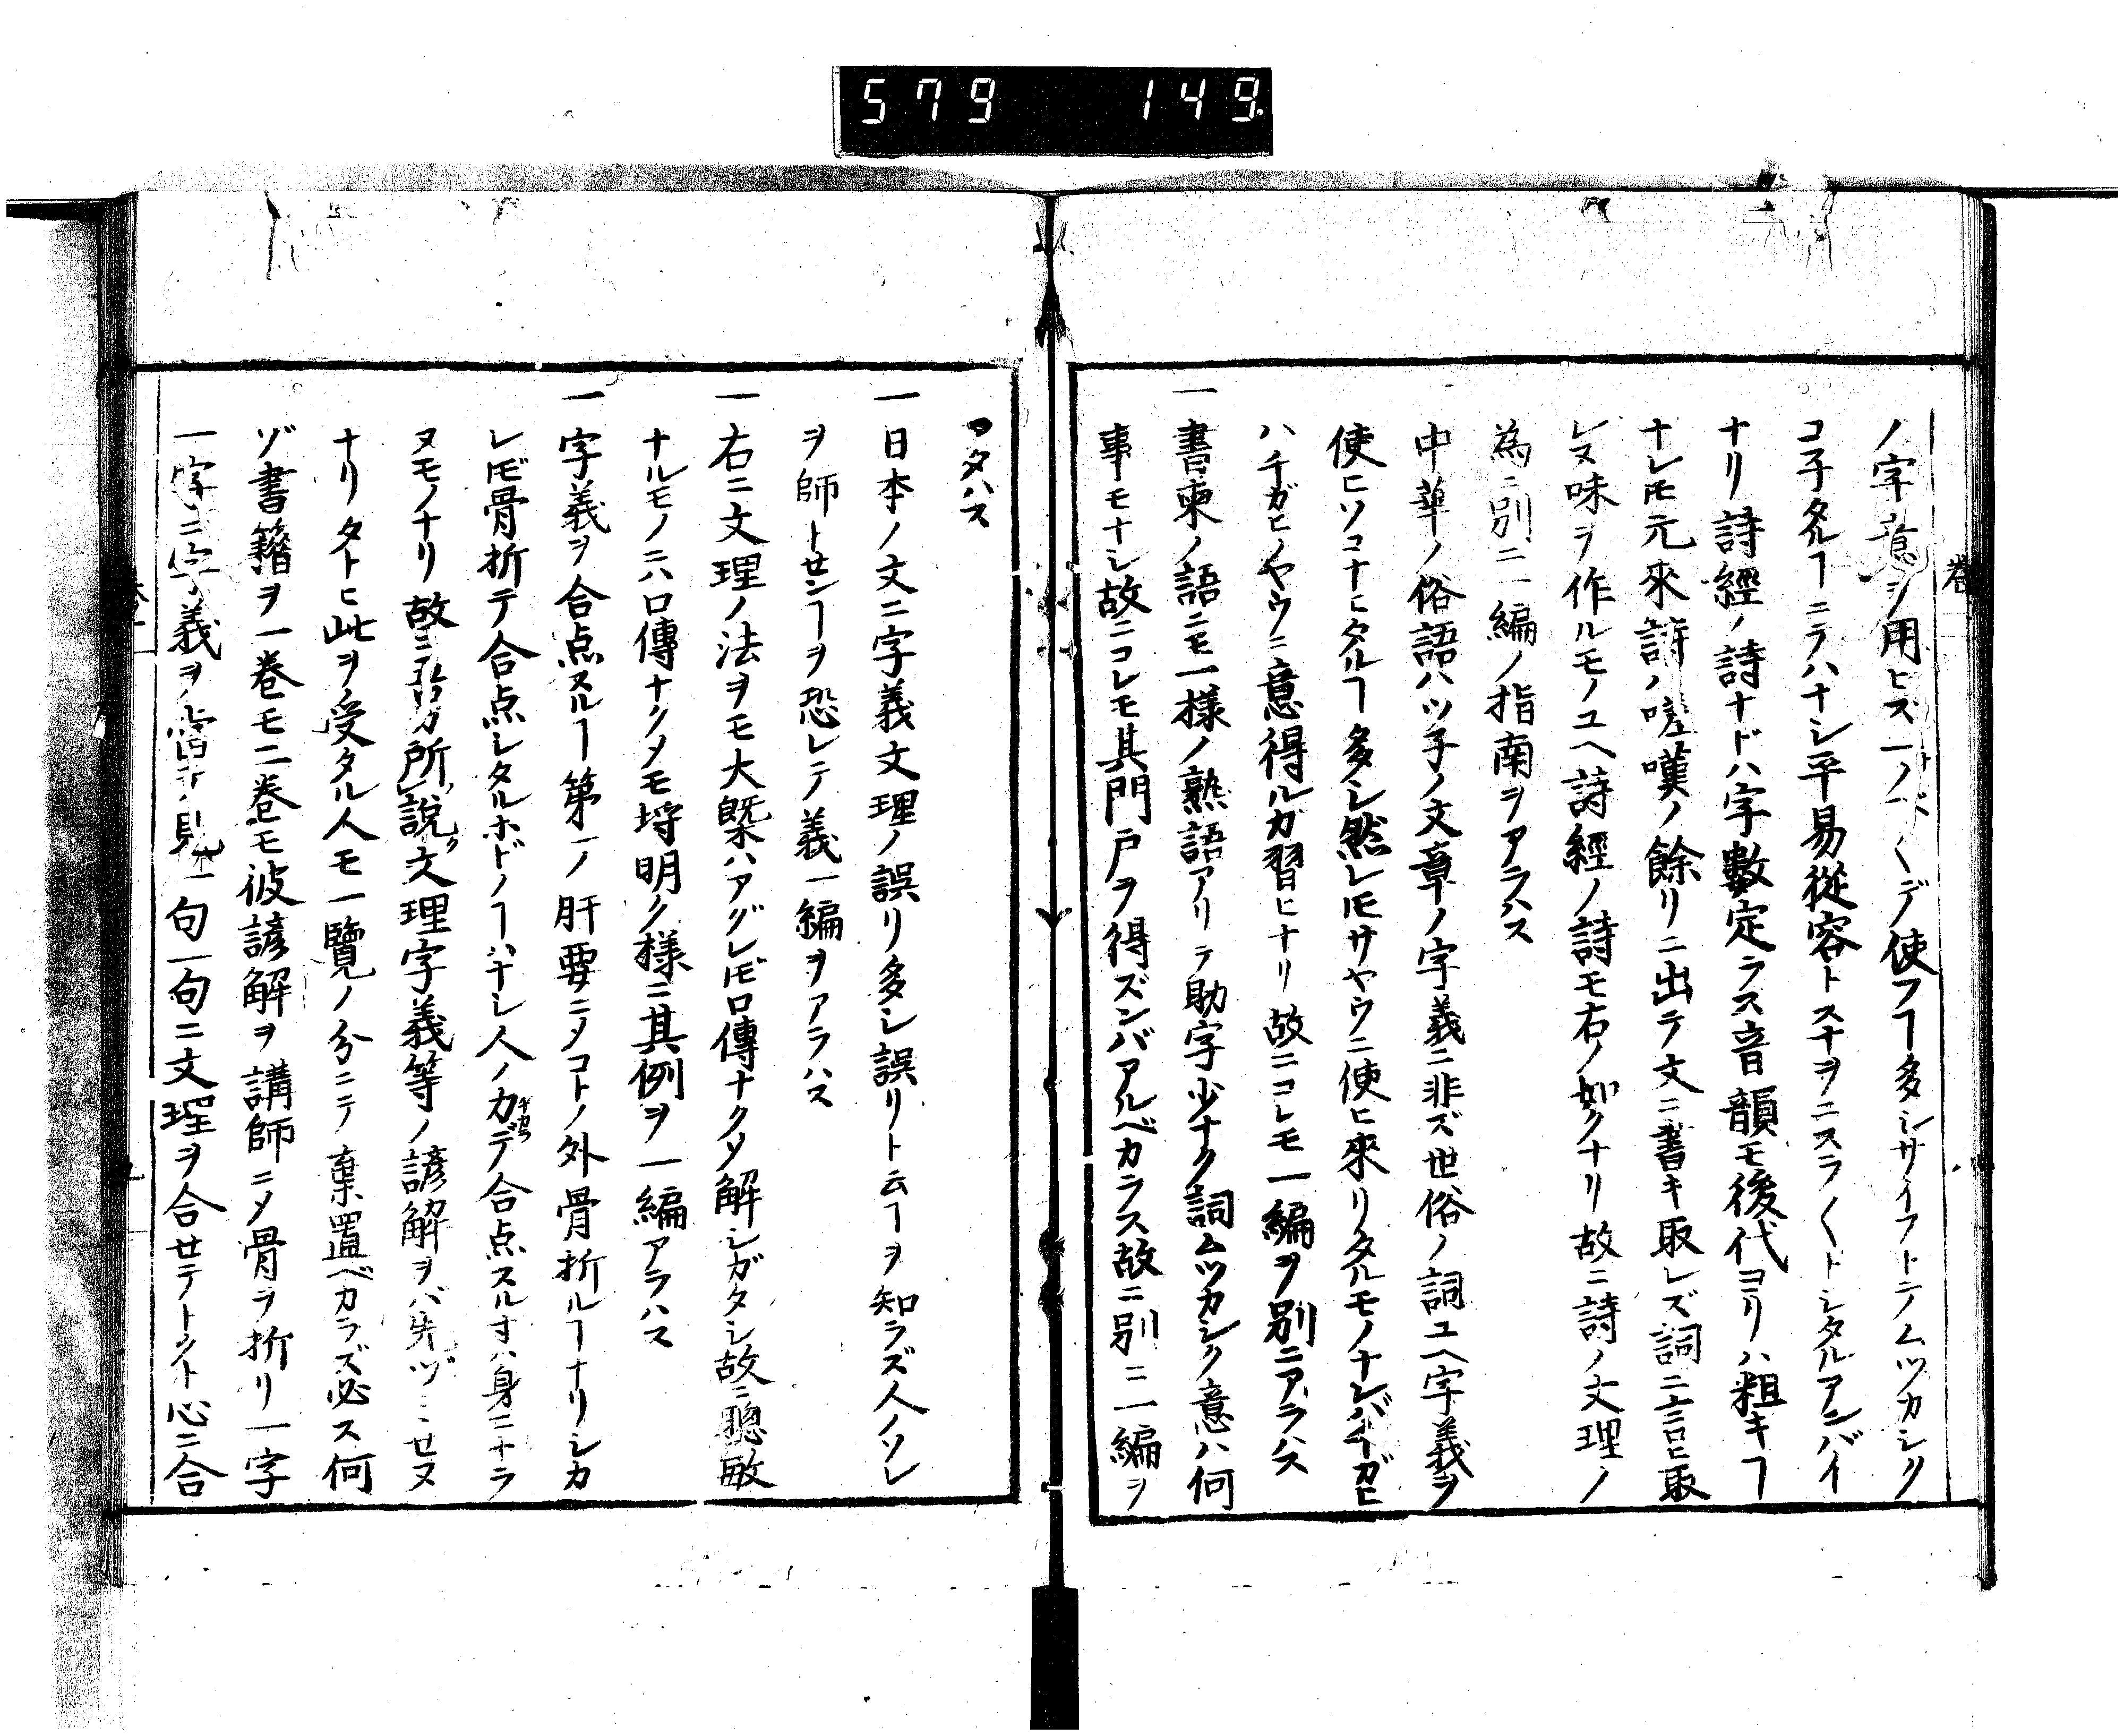 579 149
卷
ノ字意ヲ用ヒズ一ノベ〱デ使フヿ多シサイフトテムツカシク
コ子タルヿニテハナシ平易從容トスヂヲニスラ〱トシタルアンバイ
ナリ詩經ノ詩ナドハ字數定ラス音韻モ後代ヨリハ粗キヿ
ナレ𪜈元來詩ノ嗟嘆ノ餘リニ出テ文ニ書キ取レズ詞ニ言ヒ取
レヌ味ヲ作ルモノユヘ詩經ノ詩モ右ノ如クナリ故ニ詩ノ文理ノ
為ニ別ニ一編ノ指南ヲアラハス
中華ノ俗語ハツ子ノ文章ノ字義ニ非ズ世俗ノ詞ユヘ字義ヲ
使ヒソコナヒタルヿ多シ然レ𪜈サヤウニ使ヒ來リタルモノナレバチガヒ
ハチガヒノヤウニ意得ルガ習ヒナリ故ニコレモ一編ヲ別ニアラハス
一書柬ノ語ニモ一樣ノ熟語アリテ助字少ナク詞ムツカシク意ハ何
事モナシ故ニコレモ其門戸ヲ得ズンバアルベカラス故ニ別ニ一編ヲ
アタハス
一日本ノ文ニ字義文理ノ誤リ多シ誤リト云ヿヲ知ラズ人ノソレ
ヲ師トセンヿヲ恐レテ義一編ヲアラハス
一右ニ文理ノ法ヲモ大槩ハアグレ𪜈口傳ナクソ解シガタシ故ニ聰敏
ナルモノニハ口傳ナクメモ埒明ク樣ニ其例ヲ一編アラハス
一字義ヲ合点スルヿ第一ノ肝要ニメコトノ外骨折ルヿナリシカ
レ𪜈骨折テ合点シタルホドノヿハナシ人ノ力デ合点スルヿハ身ニナラ
ヌモノナリ故ニ吾カ所說文理字義等ノ諺解ヲバ先ヅミセヌ
ナリタトヒ此ヲ受タル人モ一覽ノ分ニテ棄置ベカラズ必ス何
ゾ書籍ヲ一卷モ二卷モ彼諺解ヲ講師ニメ骨ヲ折リ一字
一字ニ字義ヲ當テ見一句一句ニ文理ヲ合セテトクト心ニ合